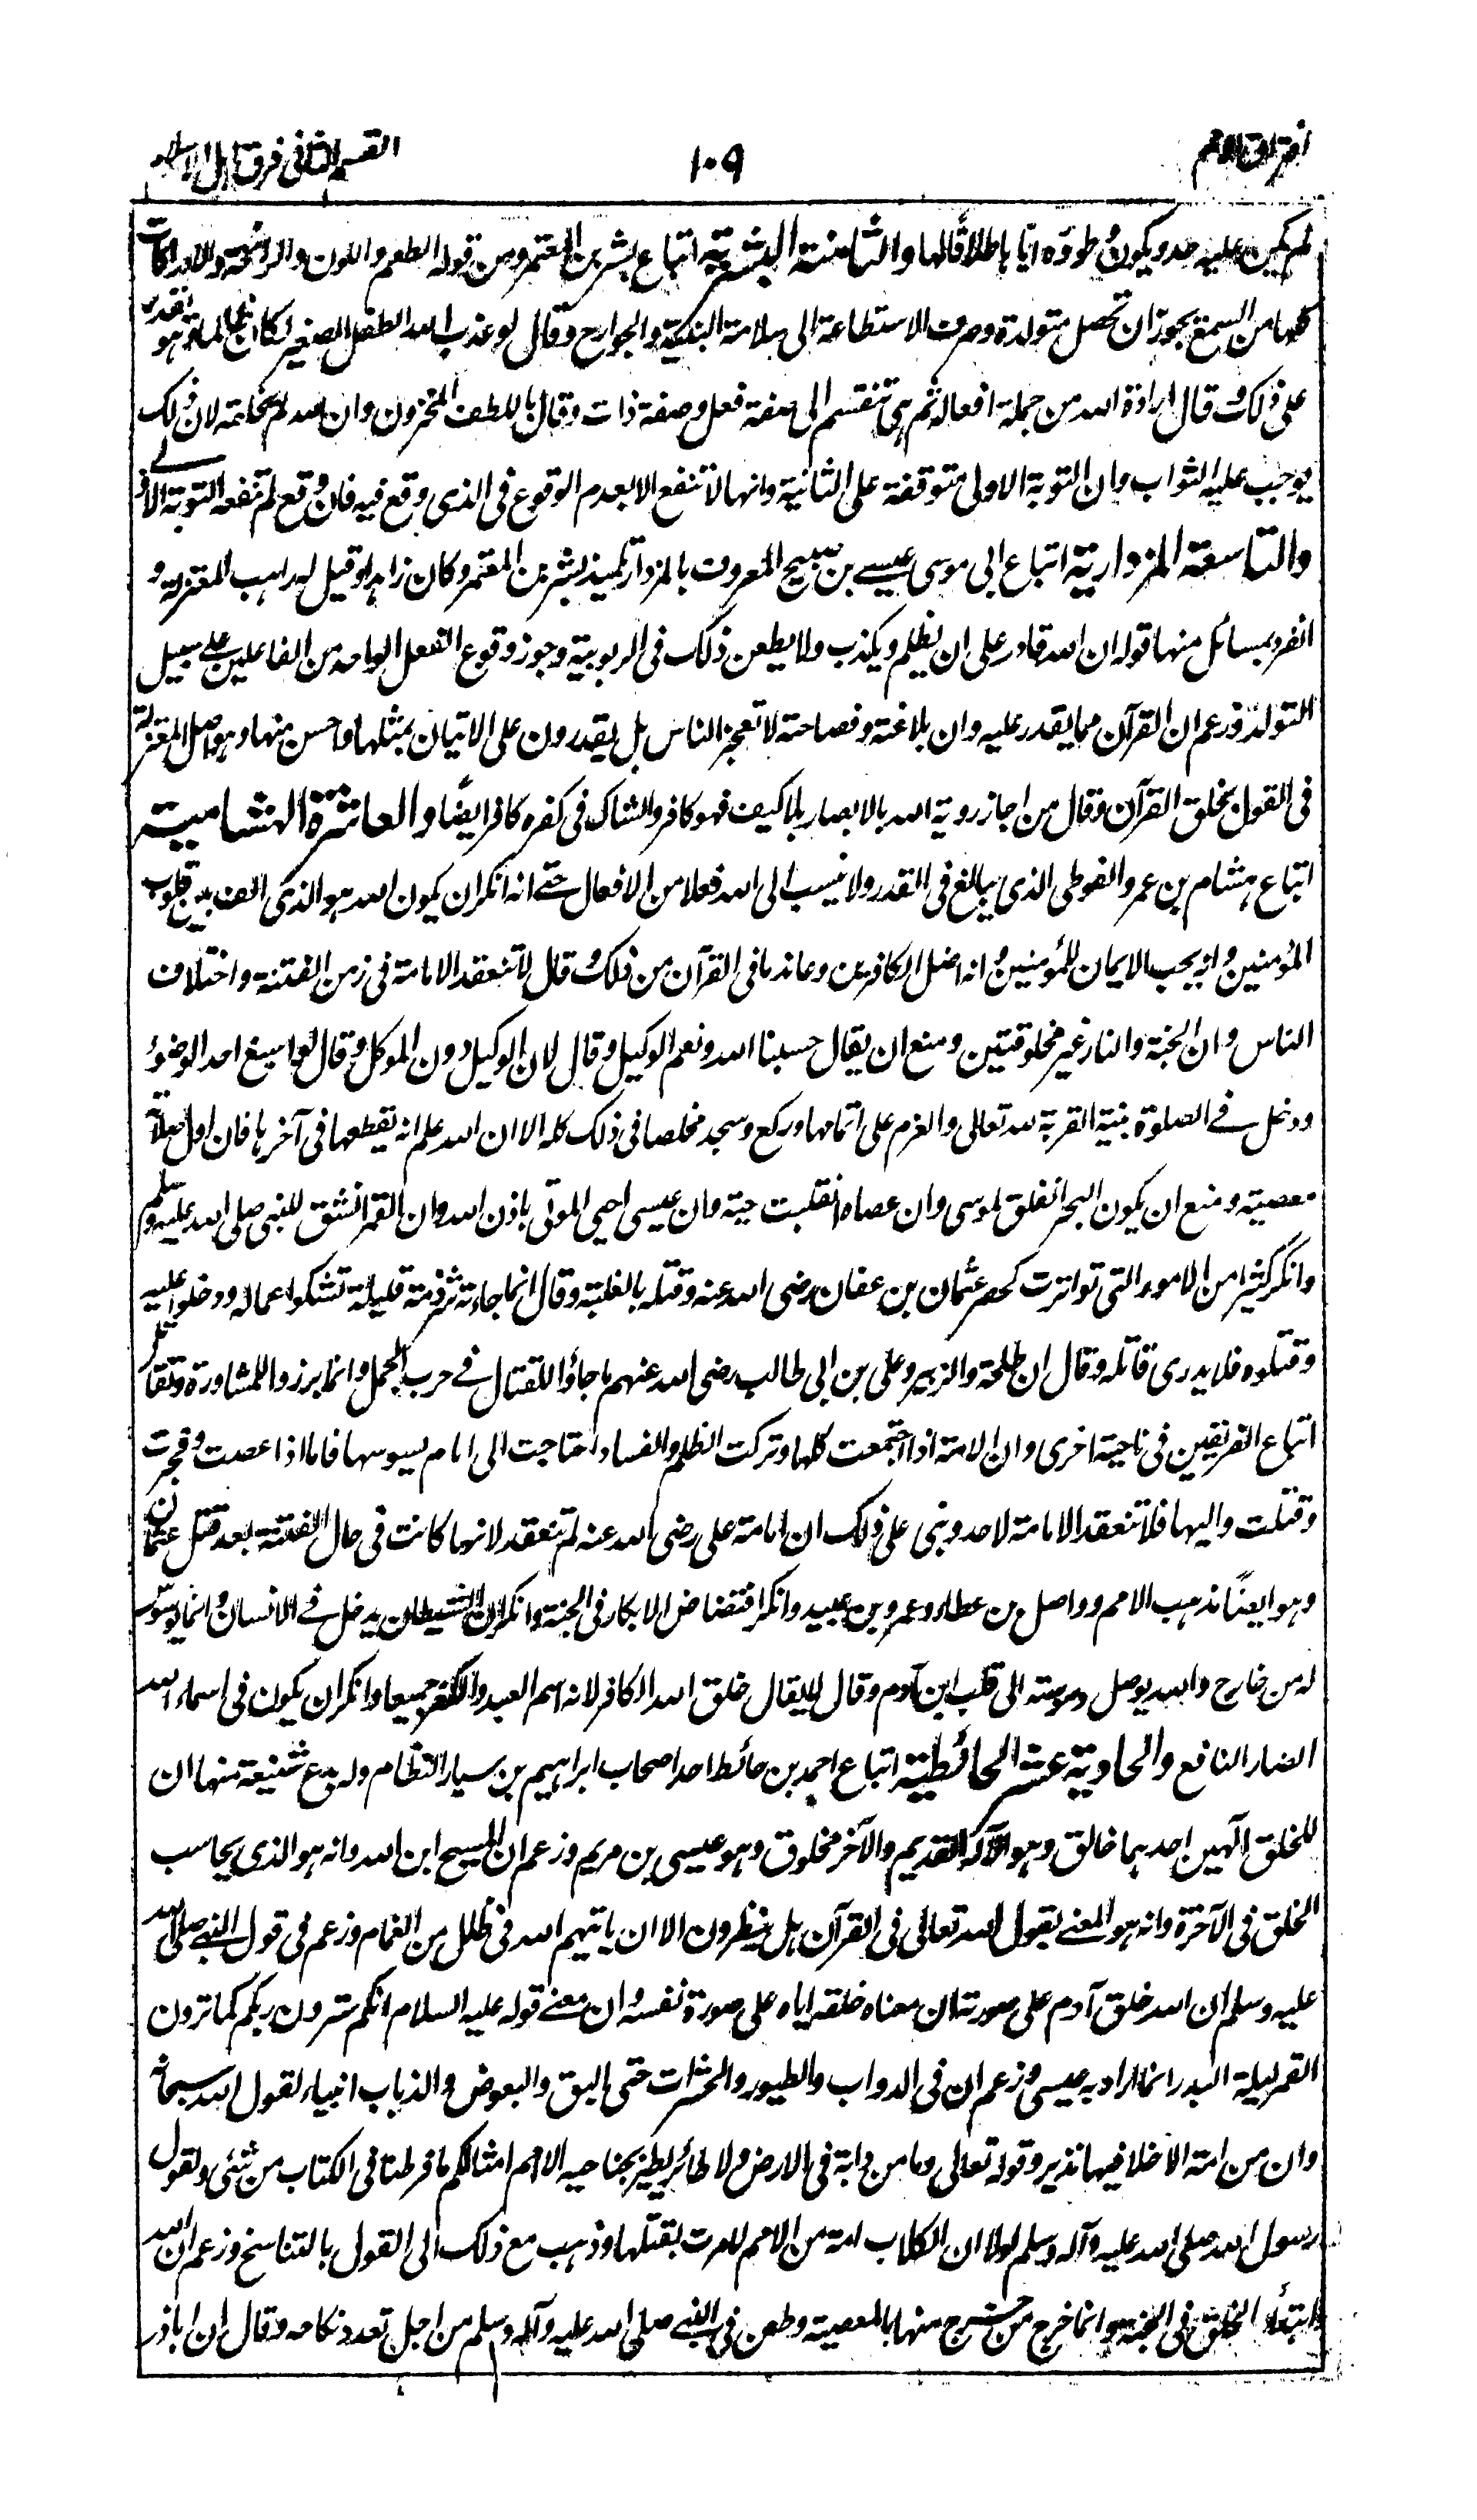 افتراق الامم
١٠٩
القسم الثانى فرق اهل الاسلام
لم يكن عليه حد ويكون وطؤه اياها طلاقا لها والثامنة البشرية اتباع بشر بن المعتمر ومن قوله الطعم واللون والرائحة والادراكات
كلها من السمع يجوز ان تحصل متولدة وصرف الاستطاعة الى سلامة البنية والجوارح وقال لو عذب الله الطفل الصغير لكان ظالما وهو يقدر
على ذلك وقال ارادة الله من جملة افعاله ثم هى تنقسم الى صفة فعل وصفة ذات وقال باللطف المخزون وان الله لم يخلقه لان ذلك
يوجب عليه الثواب وان التوبة الاولى متوقفة على الثانية وانها لا تنفع الا بعدم الوقوع فى الذى وقع فيه فان وقع لم تنفعه التوبة الاولى
والتاسعة المزدارية اتباع ابى موسى عيسى بن صبيح المعروف بالمزدار تلميذ بشر بن المعتمر وكان زاهدا وقيل له راهب المعتزلة و
انفرد بمسائل منها قوله ان الله قادر على ان يظلم ويكذب ولا يطعن ذلك فى الربوبية وجوز وقوع الفعل الواحد من الفاعلين على سبيل
التولد وزعم ان القرآن مما يقدر عليه وان بلاغته وفصاحته لا تعجز الناس بل يقدرون على الاتيان بمثلها واحسن منها وهو اصل المعتزلة
فى القول بخلق القرآن وقال من اجاز روية الله بالابصار بلا كيف فهو كافر والشاك فى كفره كافر ايضًا والعاشرة الهشامية
اتباع هشام بن عمرو الفوطى الذى يبالغ فى القدر ولا ينسب الى الله فعلا من الافعال حتى انه انكر ان يكون الله هو الذى الف بين قلوب
المؤمنين وانه يحب الايمان للمؤمنين وانه اضل الكافرين وعاند ما فى القرآن من ذلك وقال لا تنعقد الامامة فى زمن الفتنة واختلاف
الناس وان الجنة والنار غير مخلوقتين ومنع ان يقال حسبنا الله ونعم الوكيل وقال لان الوكيل دون الموكل وقال لو اسبغ احد الوضوء
ودخل فى الصلوة بنية القربة لله تعالى والعزم على اتمامها وركع وسجد مخلصا فى ذلك كله الا ان الله علم انه يقطعها فى آخرها فان اول صلاته
معصية ومنع ان يكون البحر انفلق لموسى وان عصاه انقلبت حية وان عيسى احيى الموتى باذن الله وان القمر انشق للنبى صلى الله عليه وسلم
وانكر كثيرا من الامور التى تواترت كحصر عثمان بن عفان رضى الله عنه وقتله بالغلبة وقال انما جاءته شرذمة قليلة تشكو اعماله ودخلوا عليه
وقتلوه فلا يدرى قاتله وقال ان طلحة والزبير وعلى بن ابى طالب رضى الله عنهم ما جاؤا للقتال فى حرب الجمل وانما برزوا للمشاورة وتقاتل
اتباع الفريقين فى ناحية اخرى وان الامة اذا اجتمعت كلها وتركت الظلم والفساد احتاجت الى امام يسوسها فاما اذا عصت وفجرت
وقتلت واليها فلا تنعقد الامامة لاحد وبنى على ذلك ان امامة على رضى الله عنه لم تنعقد لانها كانت فى حال الفتنة بعد قتل عثمان
وهو ايضًا مذهب الاصم وواصل بن عطاء وعمرو بن عبيد وانكر افتضاض الابكار فى الجنة وانكر ان الشيطان يدخل فى الانسان وانما يوسوس
له من خارج والله يوصل وسوسته الى قلب ابن آدم وقال لا يقال خلق الله الكافر لانه اسم العبد والكفر جميعا وانكر ان يكون فى اسماء الله
الضار النافع والحادية عشر الحائطية اتباع احمد بن حائط احد اصحاب ابراهيم بن سيار النظام وله بدع شنيعة منها ان
للخلق الٓهين احدهما خالق وهو الاله القديم والآخر مخلوق وهو عيسى بن مريم وزعم ان المسيح ابن الله وانه هو الذى يحاسب
الخلق فى الآخرة وانه هو المعنى بقول الله تعالى فى القرآن هل ينظرون الا ان ياتيهم الله فى ظلل من الغمام وزعم فى قول النبى صلى الله
عليه وسلم ان الله خلق آدم على صورته ان معناه خلقه اياه على صورة نفسه وان معنى قوله عليه السلام انكم سترون ربكم كما ترون
القمر ليلة البدر انما اراد به عيسى وزعم ان فى الدواب والطيور والحشرات حتى البق والبعوض والذباب انبياء لقول الله سبحانه
وان من امة الا خلا فيها نذير وقوله تعالى وما من دابة فى الارض ولا طائر يطير بجناحيه الا امم امثالكم ما فرطنا فى الكتاب من شئى ولقول
رسول الله صلى الله عليه وآله وسلم لولا ان الكلاب امة من الامم لامرت بقتلها وذهب مع ذلك الى القول بالتناسخ وزعم ان الله
ابتدأ الخلق فى الجنة وانما خرج من خرج منها بالمعصية وطعن فى النبى صلى الله عليه وآله وسلم من اجل تعدد نكاحه وقال ان اباذر